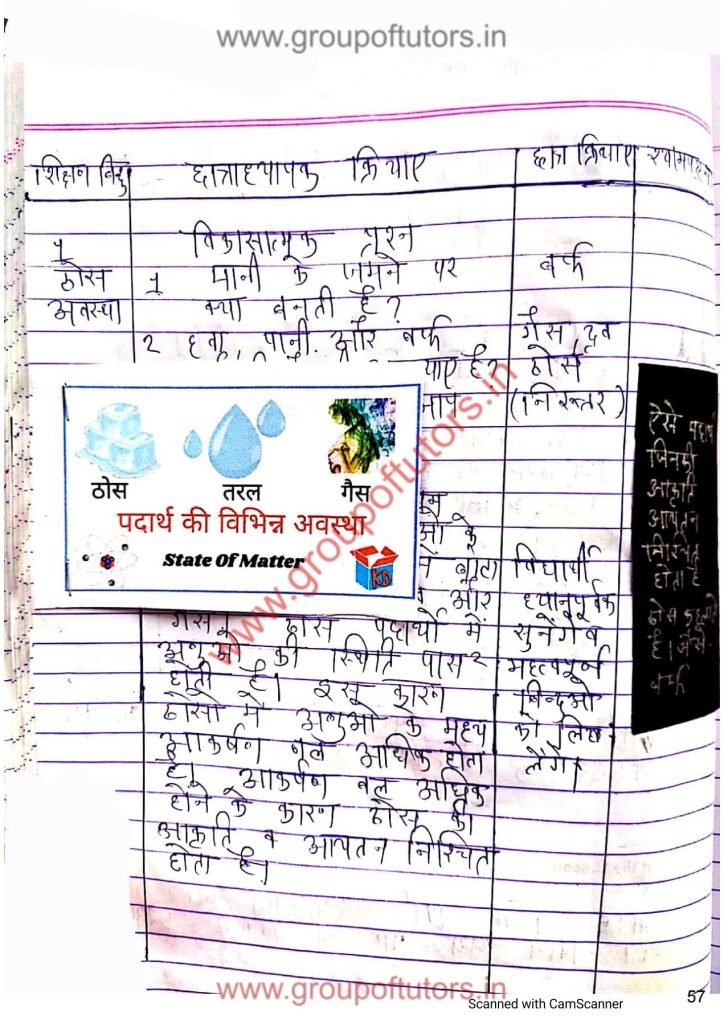 www.groupoftutors.in
शिक्षण बिंदु छात्राध्यापक क्रियाए छात्र क्रियाए श्यामपट्ट
1 विकासात्मक प्रश्न
ठोस 1 पानी के जमने पर बर्फ
अवस्था क्या बनती है?
2 हवा, पानी और बर्फ गैस द्रव
याए है? ठोस
(निरन्तर)
ठोस तरल गैस
पदार्थ की विभिन्न अवस्था
State Of Matter
KD
ओ के
विद्यार्थी
और ध्यानपूर्वक
ठोस पदार्थो में सुनेंगे व
अणुओ की स्थिति पास2 महत्वपूर्ण
होती है। इस कारण बिन्दओ
ठोसो में अणुओ के मध्य को लिख
आकर्षण बल अधिक होता लेंगे।
है। आकर्षण बल अधिक
होने के कारण ठोस की
आकृति व आयतन निश्चित
होता है।
ऐसे पदार्थ
जिनकी
आकृति
आयतन
निश्चित
होता है
ठोस कहलाते
है। जैसे
बर्फ
www.groupoftutors.in
www.groupoftutors.in
Scanned with CamScanner
57